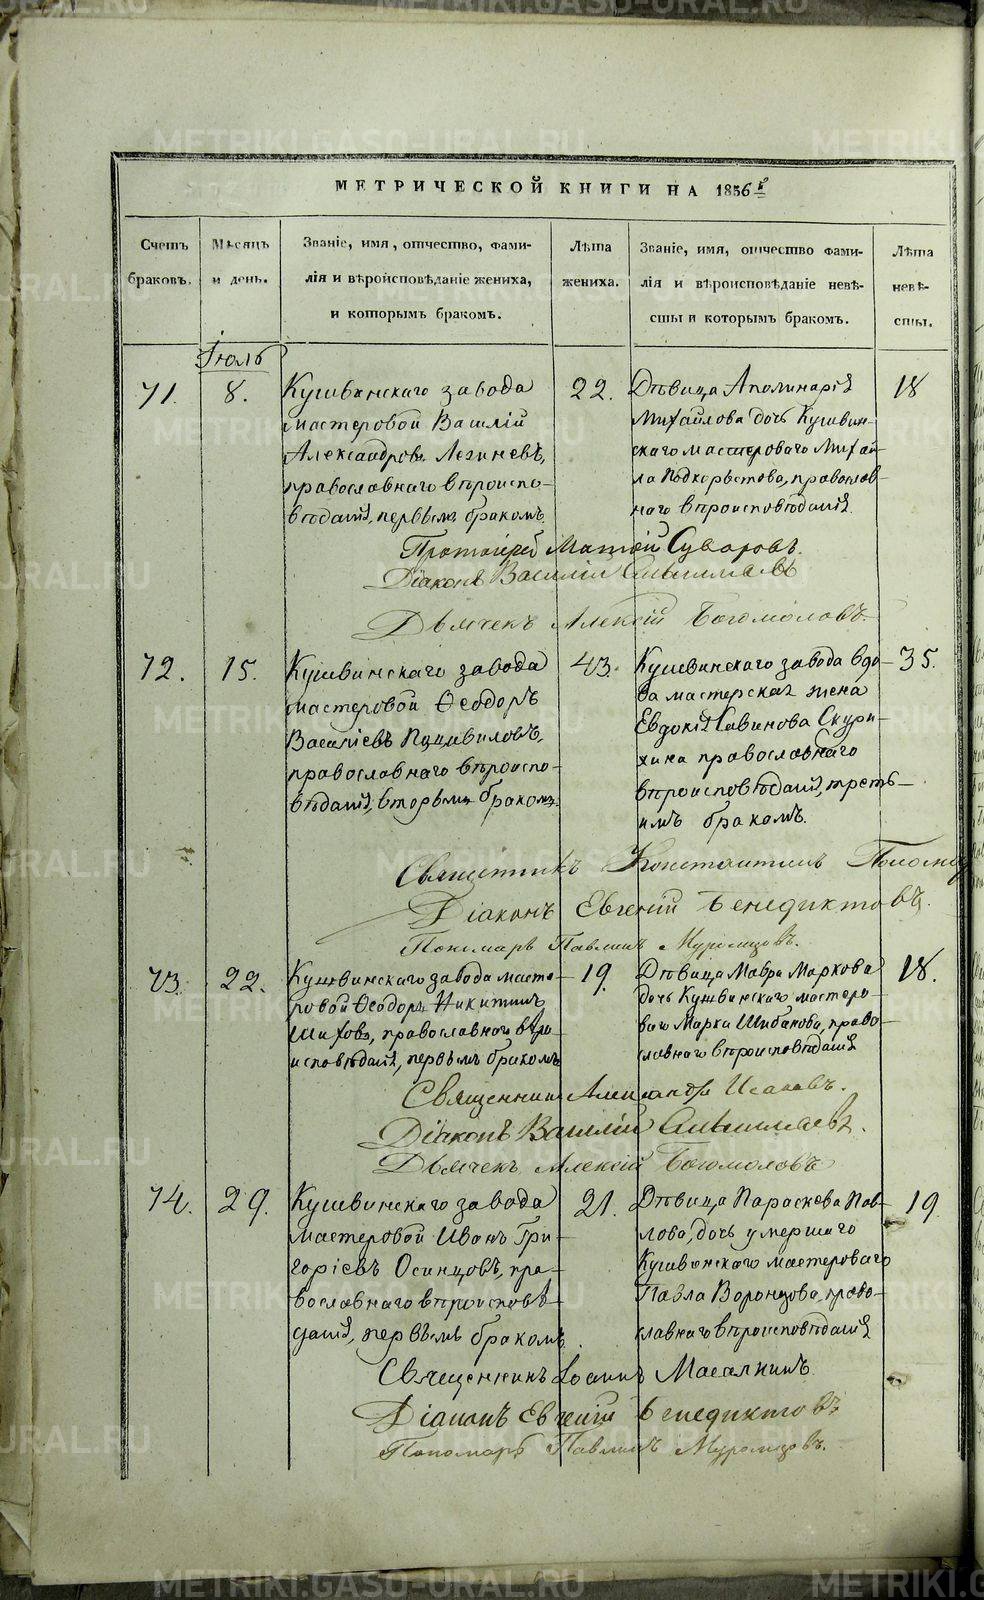 МЕТРИЧЕСКОЙ КНИГИ НА 1856 г
Счетъ браковъ.
Мѣсяцъ и день.
Званіе, имя, отчество, фами-
лія и вѣроисповѣданіе жениха,
и которымъ бракомъ.
Лѣта жениха.
Званіе, имя, отчество фами-
лія и вѣроисповѣданіе невѣ-
сты и которымъ бракомъ.
Лѣта невѣ-
сты.
Іюль
71.
8.
Кушвинскаго завода
мастеровой Василій
Александровъ
православнаго вѣроиспо-
вѣданія, первымъ бракомъ.
22.
Дѣвица Аполинарія
Михайлова дочь Кушвин-
скаго мастероваго Михай-
ла Подкорытова, православ-
наго вѣроисповѣданія
18
Протоіерей Матѳій Суворовъ.
Діаконъ Василій
Дьячекъ Алексій Богомоловъ.
72.
15.
Кушвинскаго завода
мастеровой Ѳеодоръ
Васильевъ
православнаго вѣроиспо-
вѣданія, вторымъ бракомъ.
43.
Кушвинскаго завода вдо-
ва мастерская жена
Евдокія Савинова Скури-
хина православнаго
вѣроисповѣданія, треть-
имъ бракомъ.
35.
Священникъ Константинъ
Діаконъ Евгеній Бенедиктовъ.
Пономарь Павлинъ Муромцовъ.
73.
22.
Кушвинскаго завода масте-
ровой Ѳеодоръ Никитинъ
Шиховъ, православнаго вѣро-
исповѣданія, первымъ бракомъ
19.
Дѣвица Мавра Маркова
дочь Кушвинскаго мастеро-
ваго Марка Шибанова, право-
славнаго вѣроисповѣданія
18.
Священникъ Александръ Исаковъ.
Діаконъ Василій
Дьячекъ Алексій Богомоловъ
74.
29.
Кушвинскаго завода
мастеровой Иванъ Гри-
горіевъ Осинцовъ, пра-
вославнаго вѣроисповѣ-
данія, первымъ бракомъ.
21.
Дѣвица Параскева Пав-
лова, дочь умершаго
Кушвинскаго мастероваго
Павла Воронцова, право-
славнаго вѣроисповѣданія
19
Священникъ Іоаннъ
Діаконъ Евгеній Бенедиктовъ
Пономарь Павлинъ Муромцовъ.
METRIKI.GASO-URAL.RU